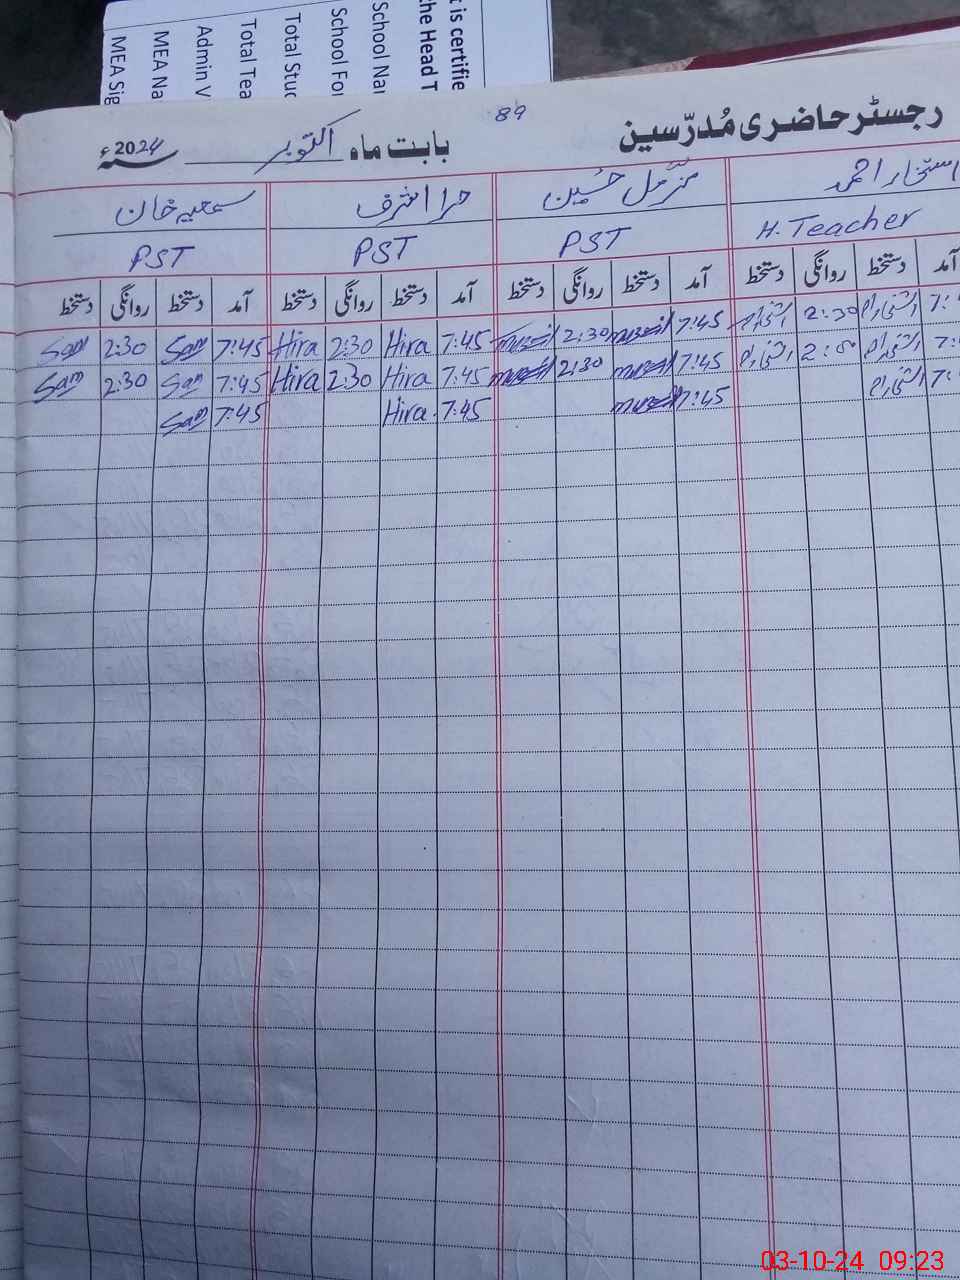 t is certifie
the Head T
School Nar
School For
Total Stud
Total Tea
Admin V
MEA Na
MEA Sig
89
رجسٹر حاضری مُدرّسین
بابت ماہ اکتوبر سنہ 2024ء
احمد مزمل حُسین حرا اشرف سمعیہ خان
H. Teacher PST PST PST
آمد دستخط روانگی دستخط آمد دستخط روانگی دستخط آمد دستخط روانگی دستخط آمد دستخط روانگی دستخط
7: 2:30 7:45 2:30 7:45 Hira 2:30 Hira 7:45 Sam 2:30 Sam
7: 7:45 2:30 7:45 Hira 2:30 Hira 7:45 Sam 2:30 Sam
7: 7:45 7:45 Hira 7:45 Sam
03-10-24 09:23